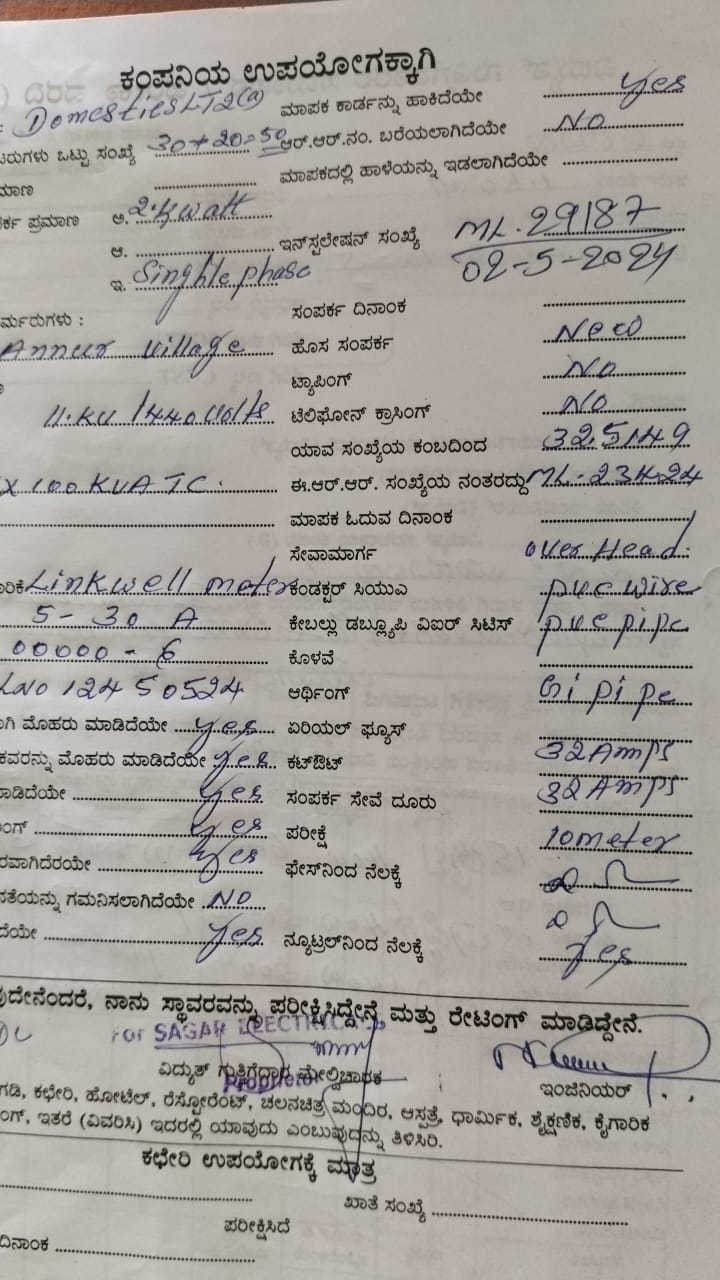 ಕಂಪನಿಯ ಉಪಯೋಗಕ್ಕಾಗಿ
: Domestics LT2(a) ಮಾಪಕ ಕಾರ್ಡನ್ನು ಹಾಕಿದೆಯೇ Yes
ಟರುಗಳು ಒಟ್ಟು ಸಂಖ್ಯೆ 30+20=50 ಆರ್.ಆರ್.ನಂ. ಬರೆಯಲಾಗಿದೆಯೇ No
ಮಾಣ ಮಾಪಕದಲ್ಲಿ ಹಾಳೆಯನ್ನು ಇಡಲಾಗಿದೆಯೇ
ರ್ಕ ಪ್ರಮಾಣ ಅ. 2.Kwatt
ಆ. ಇನ್‌ಸ್ಟಲೇಷನ್ ಸಂಖ್ಯೆ ML.29187
02-5-2024
ಇ. Singhle phase
ರ್ಮರುಗಳು : ಸಂಪರ್ಕ ದಿನಾಂಕ
Annur Village ಹೊಸ ಸಂಪರ್ಕ New
ಟ್ಯಾಪಿಂಗ್ No
11.KV/440Volts ಟೆಲಿಫೋನ್ ಕ್ರಾಸಿಂಗ್ No
ಯಾವ ಸಂಖ್ಯೆಯ ಕಂಬದಿಂದ 325149
X 100 KVA TC. ಈ.ಆರ್.ಆರ್. ಸಂಖ್ಯೆಯ ನಂತರದ್ದು ML-23424
ಮಾಪಕ ಓದುವ ದಿನಾಂಕ
ಸೇವಾಮಾರ್ಗ over Head.
ಾರಿಕೆ Linkwell meter ಕಂಡಕ್ಟರ್ ಸಿಯುವಿ p.v.c wire
5-30 A ಕೇಬಲ್ಲು ಡಬ್ಲ್ಯೂಪಿ ವಿಐರ್ ಸಿಟಿಸ್ p.v.c pipe
00000-6 ಕೊಳವೆ
LNO 12450524 ಆರ್ಥಿಂಗ್ Gi pipe
ಗಿ ಮೊಹರು ಮಾಡಿದೆಯೇ yes ಏರಿಯಲ್ ಫ್ಯೂಸ್
ಕವರನ್ನು ಮೊಹರು ಮಾಡಿದೆಯೇ yes ಕಟ್‌ಔಟ್ 32Amps
ಾಡಿದೆಯೇ yes ಸಂಪರ್ಕ ಸೇವೆ ದೂರು 32Amps
ಂಗ್ yes ಪರೀಕ್ಷೆ 10meter
ರವಾಗಿದೆರಯೇ yes ಫೇಸ್‌ನಿಂದ ನೆಲಕ್ಕೆ
ಸತೆಯನ್ನು ಗಮನಿಸಲಾಗಿದೆಯೇ No
ದೆಯೇ yes ನ್ಯೂಟ್ರಲ್‌ನಿಂದ ನೆಲಕ್ಕೆ yes
ುದೇನೆಂದರೆ, ನಾನು ಸ್ಥಾವರವನ್ನು ಪರೀಕ್ಷಿಸಿದ್ದೇನೆ ಮತ್ತು ರೇಟಿಂಗ್ ಮಾಡಿದ್ದೇನೆ.
For SAGAR ELECTRICAL
ವಿದ್ಯುತ್ ಗುತ್ತಿಗೆದಾರ ಮೇಲ್ವಿಚಾರಕ ಇಂಜಿನಿಯರ್
Proprietor
ಗಡಿ, ಕಛೇರಿ, ಹೋಟೆಲ್, ರೆಸ್ಟೋರೆಂಟ್, ಚಲನಚಿತ್ರ ಮಂದಿರ, ಆಸ್ಪತ್ರೆ, ಧಾರ್ಮಿಕ, ಶೈಕ್ಷಣಿಕ, ಕೈಗಾರಿಕ
ಂಗ್, ಇತರೆ (ವಿವರಿಸಿ) ಇದರಲ್ಲಿ ಯಾವುದು ಎಂಬುವುದನ್ನು ತಿಳಿಸಿರಿ.
ಕಛೇರಿ ಉಪಯೋಗಕ್ಕೆ ಮಾತ್ರ
ಖಾತೆ ಸಂಖ್ಯೆ
ಪರೀಕ್ಷಿಸಿದೆ
ದಿನಾಂಕ